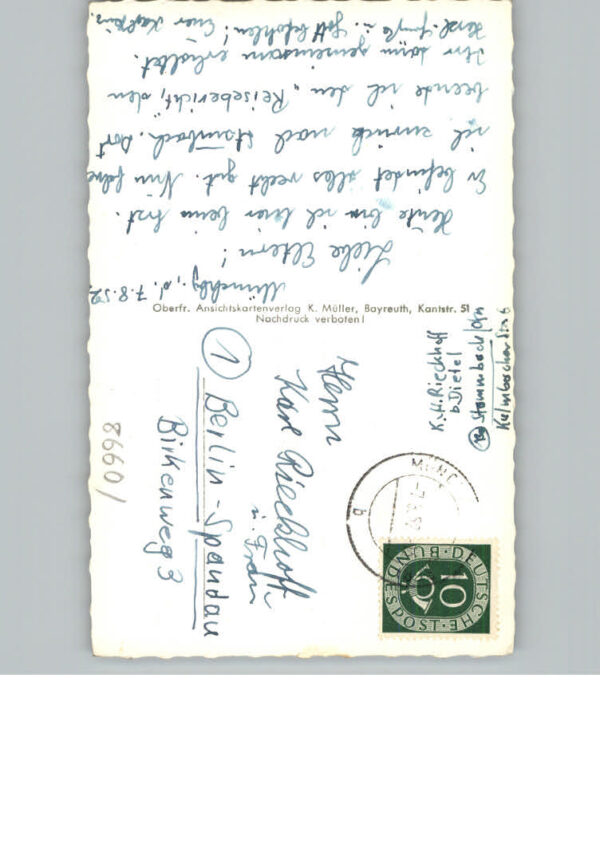 Münchbg., d. 7.8.52.
Liebe Eltern!
Heute bin ich hier beim Arzt.
Er befindet alles recht gut. Nun fahre
ich zurück nach Stammbach. Dort
beende ich den „Reisebericht“, den
Ihr dann gemeinsam erhaltet.
Herzl. Grüße u. Gott befohlen! Euer
Oberfr. Ansichtskartenverlag K. Müller, Bayreuth, Kantstr. 51
Nachdruck verboten!
K.H. Rieckhoff
b. Dietel
Stammbach/Ofr.
Kulmbacher Str. 6
MÜNC
DEUTSCHE BUNDESPOST
10
Herrn
Karl Rieckhoff
u. Frau
1 Berlin-Spandau
Birkenweg 3
8660/